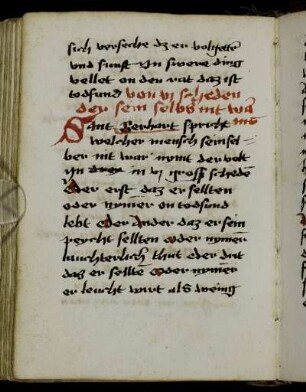 sich versehe dz er volhertt
vnd sunst yn swere ding
vellet on den rat daz ist
todsund von vj scheden
der sein selbs nit war
Sant Berhart spricht nit
welcher mensch seinsel
ben nit war nymt der volt
yn in vj gross schedn
Der erst daz er sellten
oder nymer on todsund
lebt oder Der ander daz er sein
peycht sellten oder nymer
lauchterlich thut Der drit
daz er sellten oder nymer
erleucht wirt als wenig